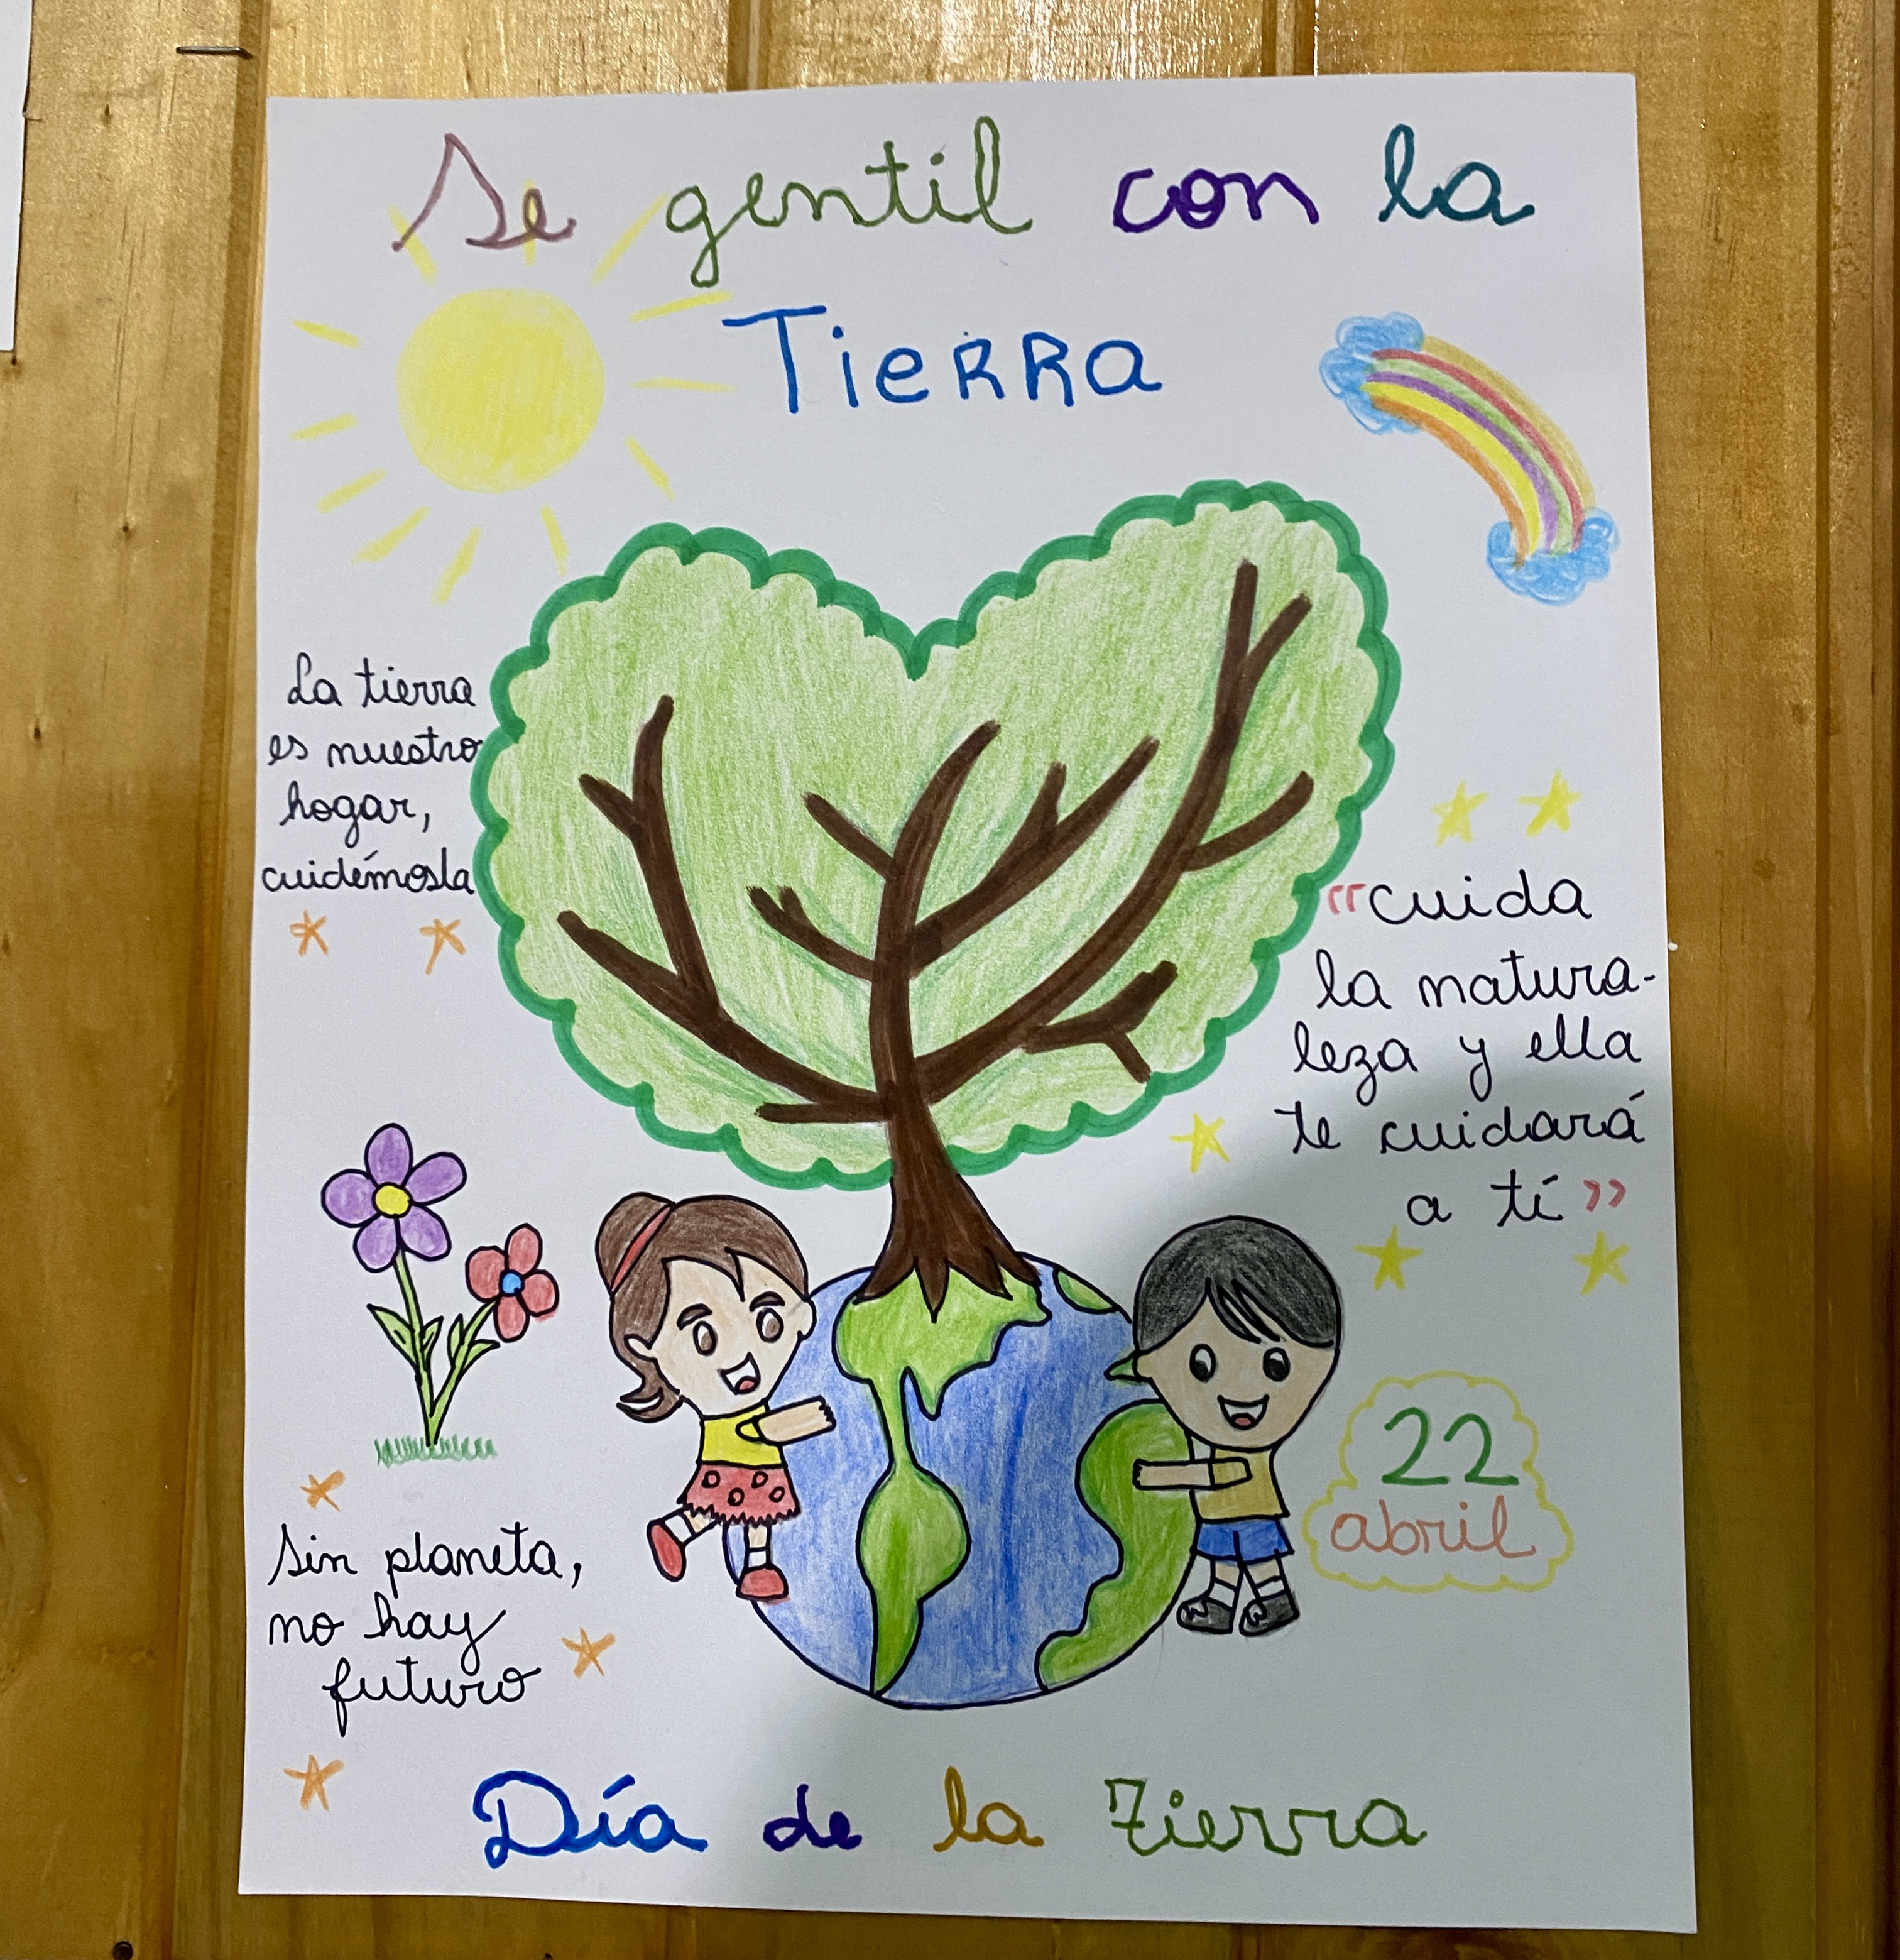 Se gentil con la
Tierra
La tierra
es nuestro
hogar,
cuidémosla
"cuida
la natura-
leza y ella
te cuidará
a tí"
22
abril
Sin planeta,
no hay
futuro
Día de la Tierra